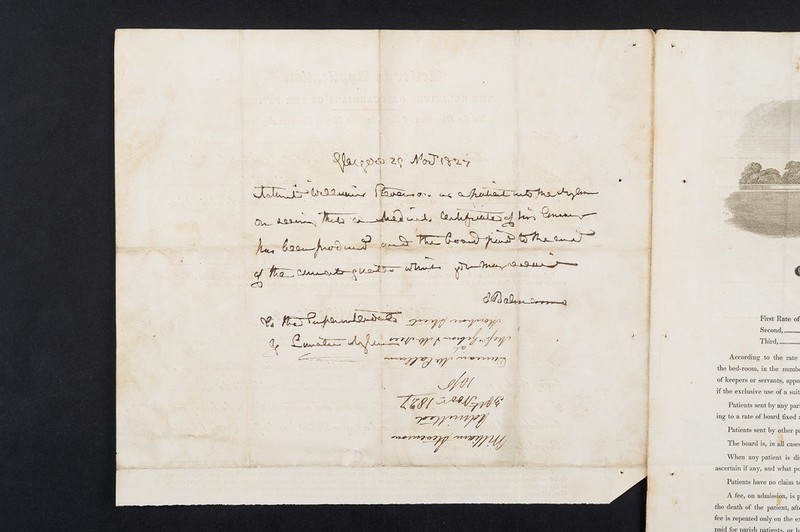 Glasgow 29 Novr 1827
Admit William Stevenson as a patient into the Asylum
on seeing that a Medical Certificate of his Insanity
has been produced and the board paid to the end
of the current quarter which you may receive
To the Superintendent
of Lunatic Asylum
Duncan McCallum
10/6
30th Novr 1827
Admitted
William Stevenson
First Rate of
Second,
Third,
According to the rate
the bed-room, in the numbe
of keepers or servants, appo
if the exclusive use of a suit
Patients sent by any pari
ing to a rate of board fixed a
Patients sent by other pa
The board is, in all cases
When any patient is di
ascertain if any, and what po
Patients have no claim t
A fee, on admission, is p
the death of the patient, afte
fee is repeated only on the e
paid for parish patients, or b